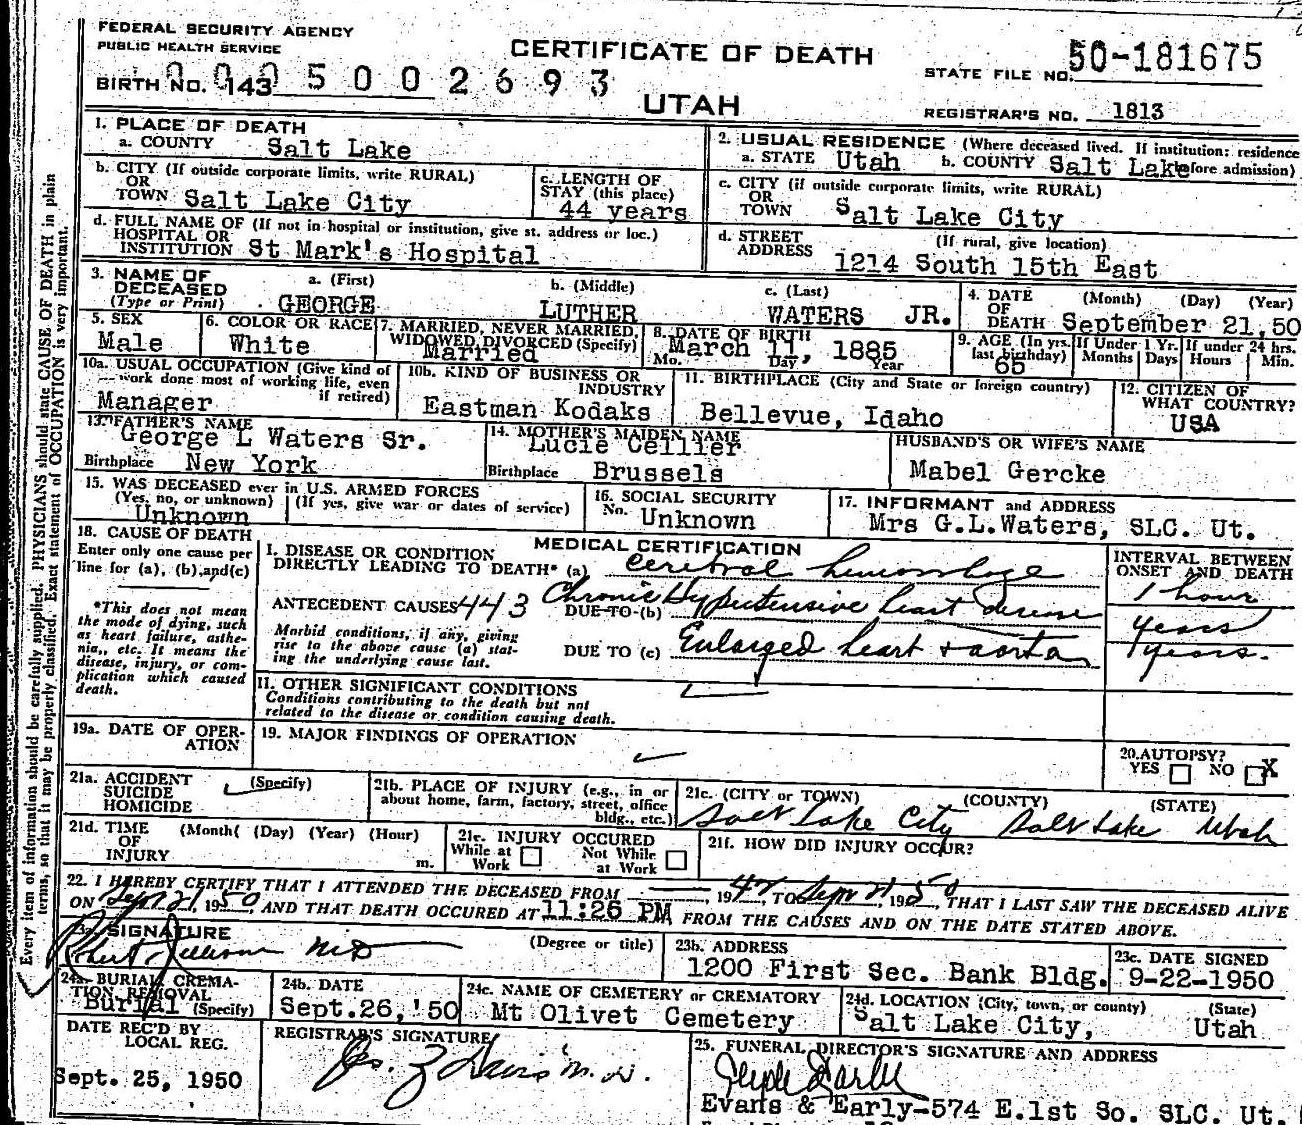 FEDERAL SECURITY AGENCY
PUBLIC HEALTH SERVICE
CERTIFICATE OF DEATH
UTAH
STATE FILE NO. 50-181675
BIRTH NO. 143 0005002693
REGISTRAR'S NO. 1813
Every item of information should be carefully supplied. PHYSICIANS should state CAUSE OF DEATH in plain
terms, so that it may be properly classified. Exact statement of OCCUPATION is very important.
1. PLACE OF DEATH
a. COUNTY Salt Lake
b. CITY (If outside corporate limits, write RURAL)
OR
TOWN Salt Lake City
c. LENGTH OF
STAY (this place)
44 years
d. FULL NAME OF (If not in hospital or institution, give st. address or loc.)
HOSPITAL OR
INSTITUTION St Mark's Hospital
2. USUAL RESIDENCE (Where deceased lived. If institution: residence
a. STATE Utah b. COUNTY Salt Lake before admission)
c. CITY (if outside corporate limits, write RURAL)
OR
TOWN Salt Lake City
d. STREET (If rural, give location)
ADDRESS 1214 South 15th East
3. NAME OF
DECEASED
(Type or Print)
a. (First) b. (Middle) c. (Last)
GEORGE LUTHER WATERS JR.
4. DATE (Month) (Day) (Year)
OF
DEATH September 21,50
5. SEX
Male
6. COLOR OR RACE
White
7. MARRIED, NEVER MARRIED,
WIDOWED, DIVORCED (Specify)
Married
8. DATE OF BIRTH
March 11, 1885
Mo. Day Year
9. AGE (In yrs.
last birthday)
65
If Under 1 Yr.
Months Days
If under 24 hrs.
Hours Min.
10a. USUAL OCCUPATION (Give kind of
work done most of working life, even
if retired)
Manager
10b. KIND OF BUSINESS OR
INDUSTRY
Eastman Kodaks
11. BIRTHPLACE (City and State or foreign country)
Bellevue, Idaho
12. CITIZEN OF
WHAT COUNTRY?
USA
13. FATHER'S NAME
George L Waters Sr.
Birthplace New York
14. MOTHER'S MAIDEN NAME
Lucie Cellier
Birthplace Brussels
HUSBAND'S OR WIFE'S NAME
Mabel Gercke
15. WAS DECEASED ever in U.S. ARMED FORCES
(Yes, no, or unknown) (If yes, give war or dates of service)
Unknown
16. SOCIAL SECURITY
No. Unknown
17. INFORMANT and ADDRESS
Mrs G.L.Waters, SLC. Ut.
18. CAUSE OF DEATH
Enter only one cause per
line for (a), (b), and (c)
*This does not mean
the mode of dying, such
as heart failure, asthe-
nia, etc. It means the
disease, injury, or com-
plication which caused
death.
MEDICAL CERTIFICATION
I. DISEASE OR CONDITION
DIRECTLY LEADING TO DEATH* (a) cerebral hemorrhage
ANTECEDENT CAUSES 443
DUE TO (b) Chronic Hypertensive heart disease
Morbid conditions, if any, giving
rise to the above cause (a) stat-
ing the underlying cause last.
DUE TO (c) Enlarged heart + aorta
INTERVAL BETWEEN
ONSET AND DEATH
1 hour
years
years.
11. OTHER SIGNIFICANT CONDITIONS
Conditions contributing to the death but not
related to the disease or condition causing death.
19a. DATE OF OPER-
ATION
19. MAJOR FINDINGS OF OPERATION
20. AUTOPSY?
YES NO X
21a. ACCIDENT (Specify)
SUICIDE
HOMICIDE
21b. PLACE OF INJURY (e.g., in or
about home, farm, factory, street, office
bldg., etc.)
21c. (CITY or TOWN) (COUNTY) (STATE)
Salt Lake City Salt Lake Utah
21d. TIME (Month( (Day) (Year) (Hour)
OF
INJURY m.
21e. INJURY OCCURED
While at Not While
Work at Work
21f. HOW DID INJURY OCCUR?
22. I HEREBY CERTIFY THAT I ATTENDED THE DECEASED FROM , 1942, TO Sept 21, 1950, THAT I LAST SAW THE DECEASED ALIVE
ON Sept 21, 1950, AND THAT DEATH OCCURED AT 11:26 PM FROM THE CAUSES AND ON THE DATE STATED ABOVE.
23. SIGNATURE (Degree or title)
Robert MD
23b. ADDRESS
1200 First Sec. Bank Bldg.
23c. DATE SIGNED
9-22-1950
24a. BURIAL, CREMA-
TION REMOVAL
Burial (Specify)
24b. DATE
Sept.26,'50
24c. NAME OF CEMETERY or CREMATORY
Mt Olivet Cemetery
24d. LOCATION (City, town, or county) (State)
Salt Lake City, Utah
DATE REC'D BY
LOCAL REG.
Sept. 25, 1950
REGISTRAR'S SIGNATURE
Davis M.D.
25. FUNERAL DIRECTOR'S SIGNATURE AND ADDRESS
Evans & Early-574 E.1st So. SLC. Ut.